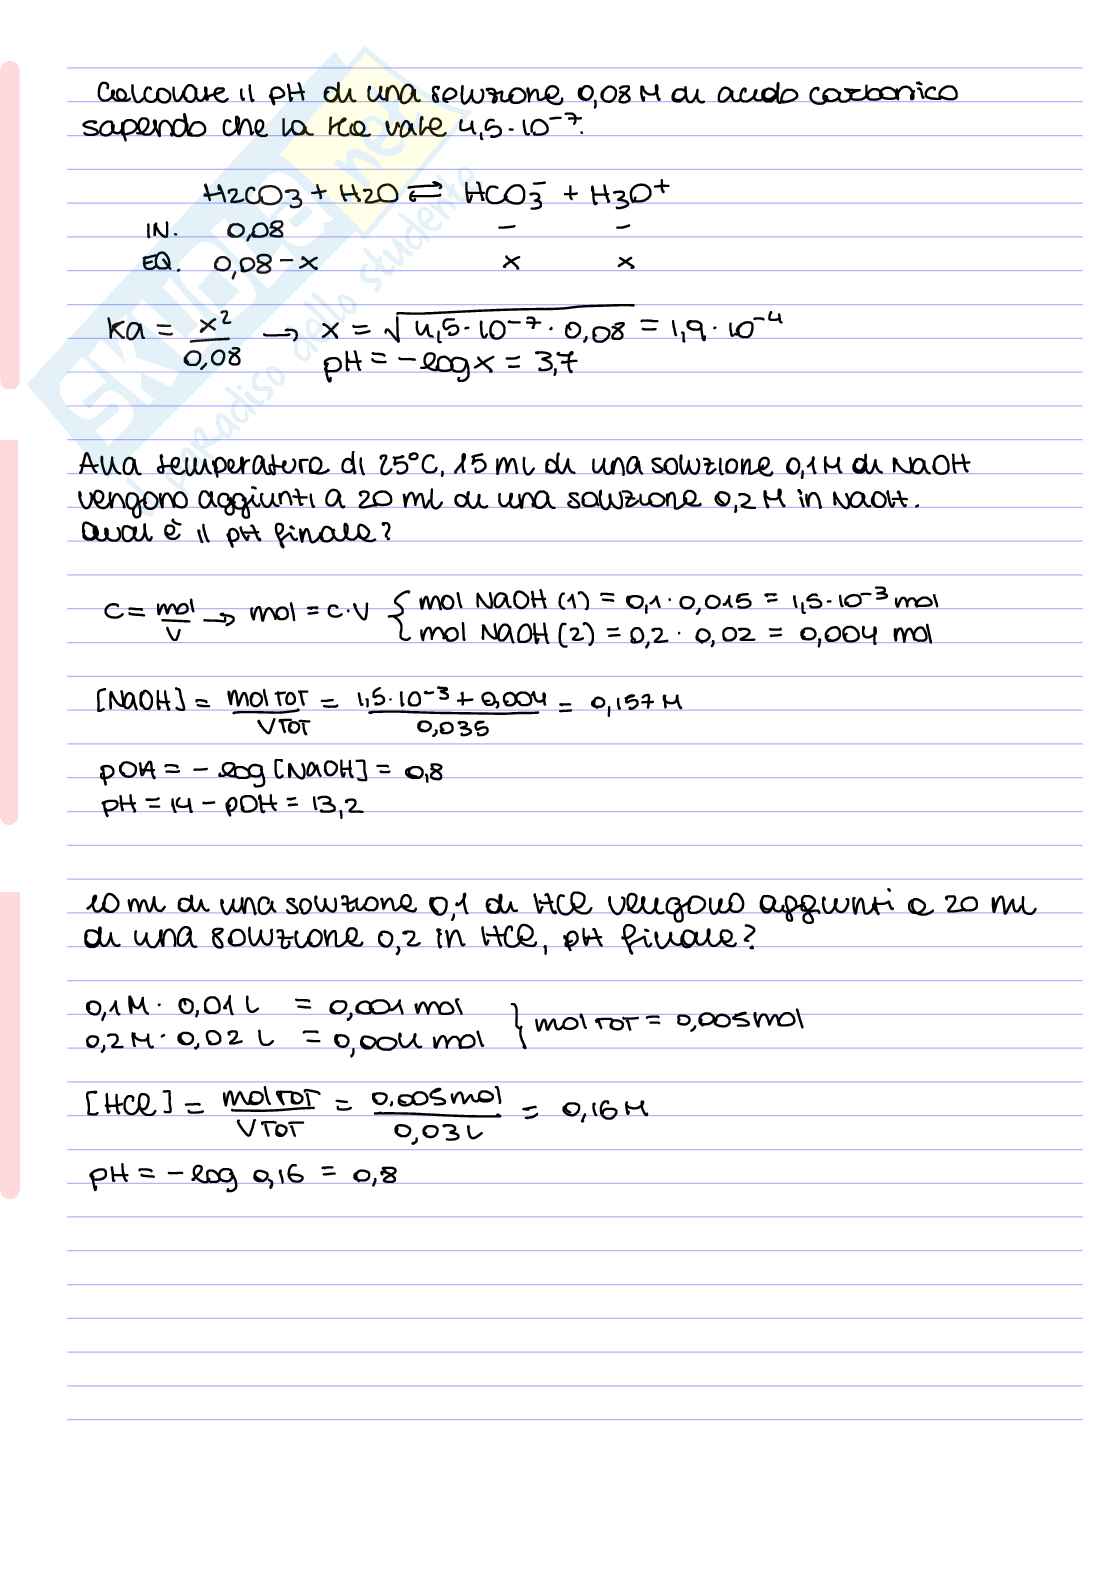 Calcolare il pH di una soluzione 0,08 M di acido carbonico
sapendo che la Ka vale 4,5·10⁻⁷.
H2CO3 + H2O ⇌ HCO3⁻ + H3O⁺
IN. 0,08 - -
EQ. 0,08-x x x
Ka = x²/0,08 → x = √(4,5·10⁻⁷·0,08) = 1,9·10⁻⁴
pH = -log x = 3,7
Alla temperatura di 25°C, 15 ml di una soluzione 0,1M di NaOH
vengono aggiunti a 20 ml di una soluzione 0,2 M in NaOH.
Qual è il pH finale?
C = mol/V → mol = C·V { mol NaOH (1) = 0,1·0,015 = 1,5·10⁻³ mol
mol NaOH (2) = 0,2·0,02 = 0,004 mol
[NaOH] = mol TOT/V TOT = 1,5·10⁻³ + 0,004/0,035 = 0,157 M
pOH = -log [NaOH] = 0,8
pH = 14 - pOH = 13,2
10 ml di una soluzione 0,1 di HCl vengono aggiunti a 20 ml
di una soluzione 0,2 in HCl, pH finale?
0,1 M · 0,01 L = 0,001 mol
0,2 M · 0,02 L = 0,004 mol } mol TOT = 0,005 mol
[HCl] = mol TOT/V TOT = 0,005 mol/0,03 L = 0,16 M
pH = -log 0,16 = 0,8
SKUOLA.net
il paradiso dello studente